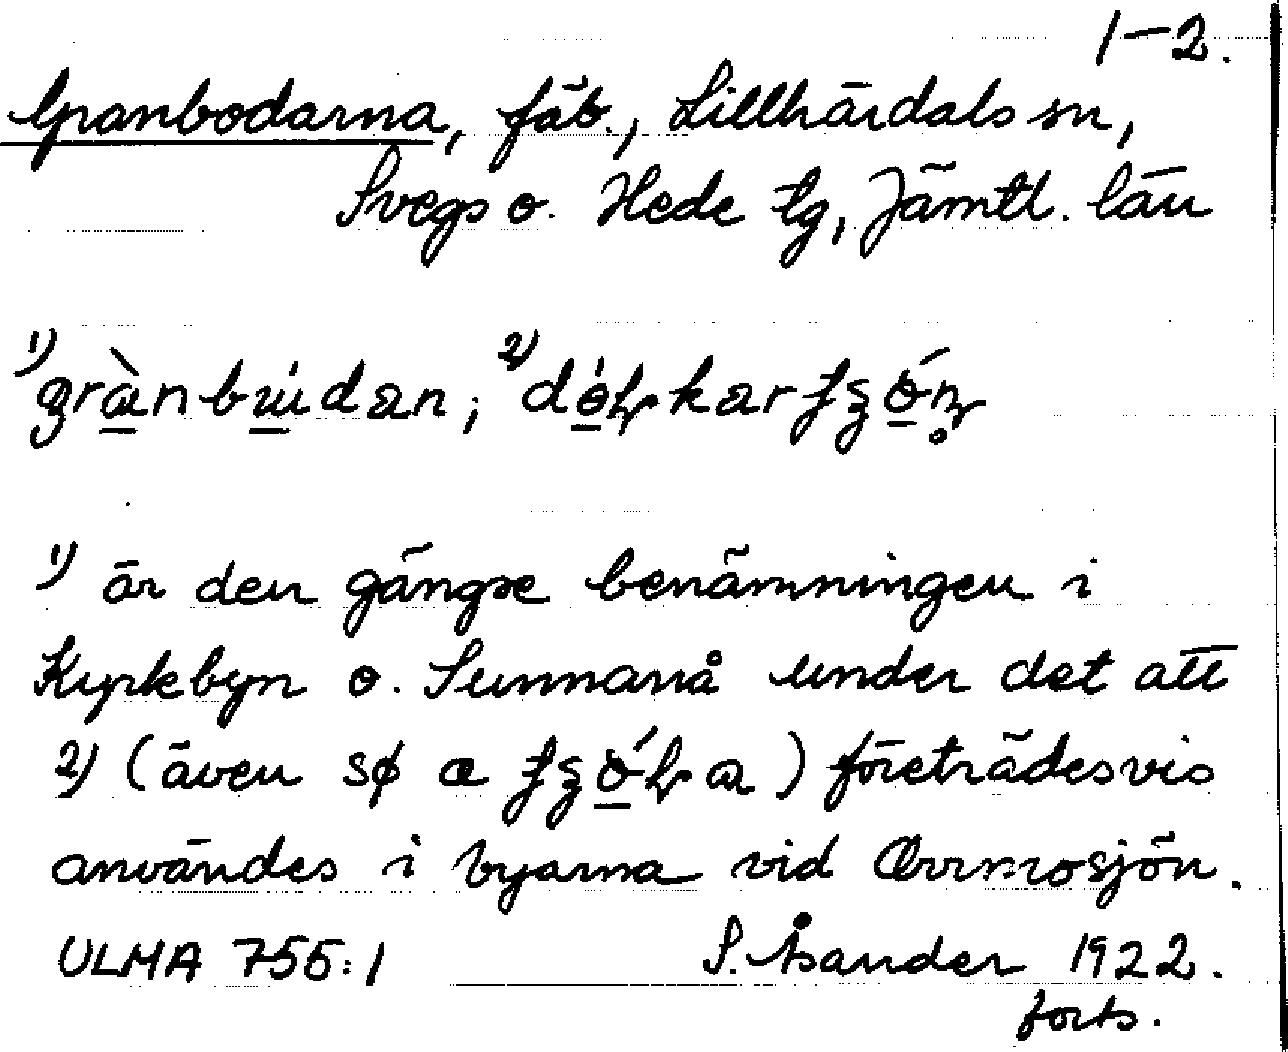 1-2.
Granbodarna, fäb., Lillhärdals sn,
Svegs o. Hede tg, Jämtl. län
1) 2)
1) är den gängse benämningen i
Kyrkbyn o. Sunnanå under det att
2) (även) företrädesvis
användes i byarna vid Orrmosjön.
ULMA 755:1 S. Åsander 1922.
forts.